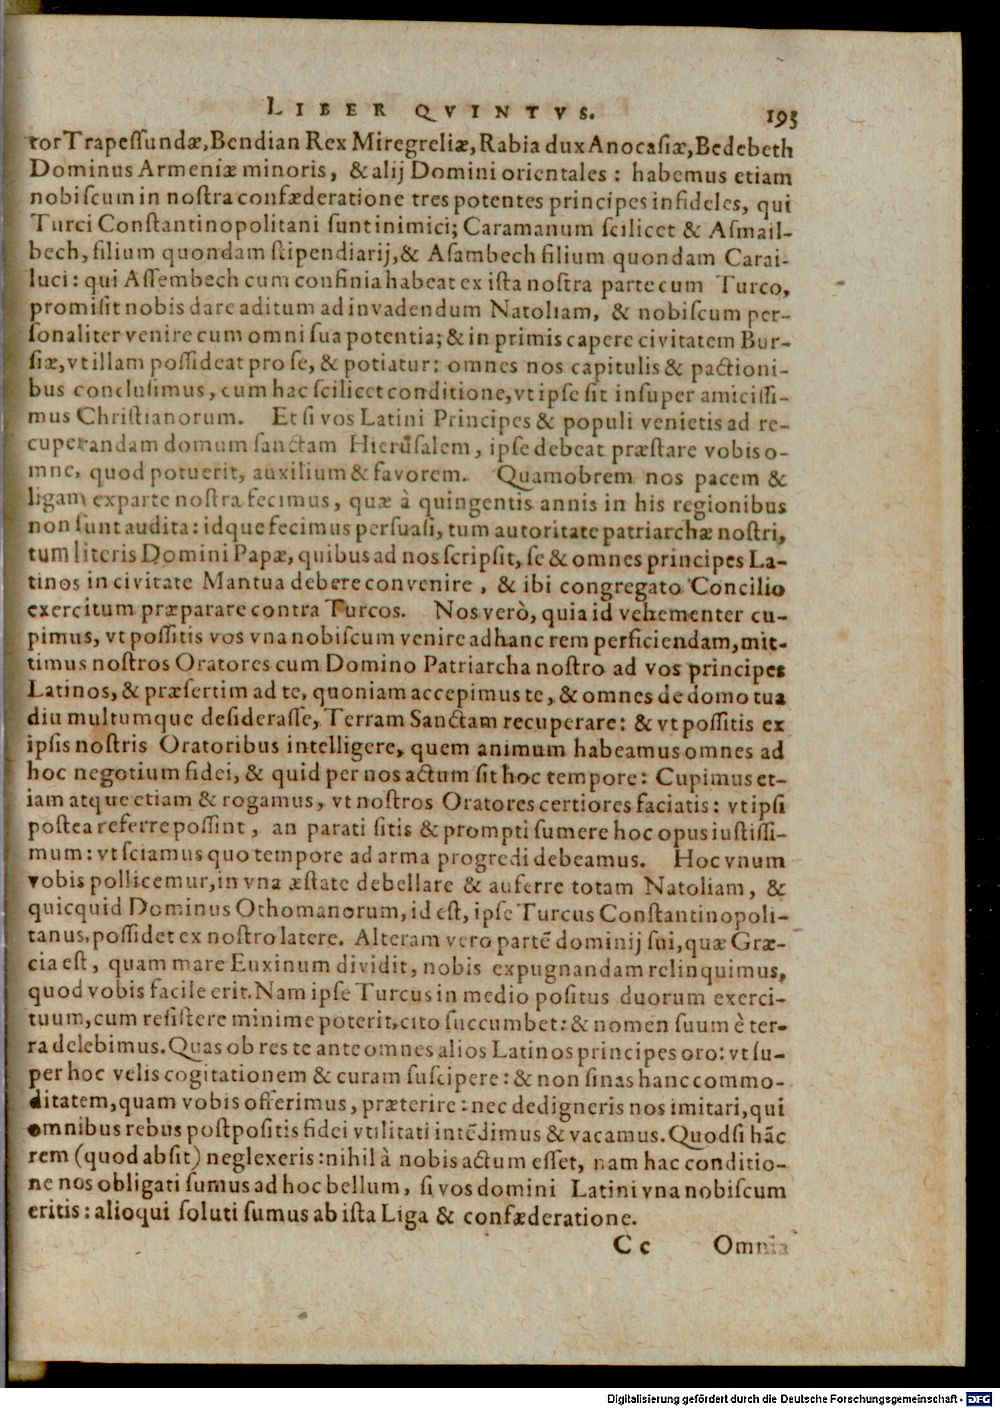 LIBER QVINTVS. 195
tor Trapeſſundæ, Bendian Rex Miregreliæ, Rabia dux Anocaſiæ, Bedebeth
Dominus Armeniæ minoris, & alij Domini orientales: habemus etiam
nobiſcum in noſtra confæderatione tres potentes principes infideles, qui
Turci Conſtantinopolitani ſunt inimici; Caramanum ſcilicet & Aſmail-
bech, filium quondam ſtipendiarij, & Aſambech filium quondam Carai-
luci: qui Aſſembech cum confinia habeat ex iſta noſtra parte cum Turco,
promiſit nobis dare aditum ad invadendum Natoliam, & nobiſcum per-
ſonaliter venire cum omni ſua potentia; & in primis capere civitatem Bur-
ſiæ, vt illam poſſideat pro ſe, & potiatur: omnes nos capitulis & pactioni-
bus concluſimus, cum hac ſcilicet conditione, vt ipſe ſit inſuper amiciſſi-
mus Chriſtianorum. Et ſi vos Latini Principes & populi venietis ad re-
cuperandam domum ſanctam Hierūſalem, ipſe debeat præſtare vobis o-
mne, quod potuerit, auxilium & favorem. Quamobrem nos pacem &
ligam ex parte noſtra fecimus, quæ à quingentis annis in his regionibus
non ſunt audita: idque fecimus perſuaſi, tum autoritate patriarchæ noſtri,
tum literis Domini Papæ, quibus ad nos ſcripſit, ſe & omnes principes La-
tinos in civitate Mantua debere convenire, & ibi congregato Concilio
exercitum præparare contra Turcos. Nos verò, quia id vehementer cu-
pimus, vt poſſitis vos vna nobiſcum venire ad hanc rem perficiendam, mit-
timus noſtros Oratores cum Domino Patriarcha noſtro ad vos principes
Latinos, & præſertim ad te, quoniam accepimus te, & omnes de domo tua
diu multumque deſideraſſe, Terram Sanctam recuperare: & vt poſſitis ex
ipſis noſtris Oratoribus intelligere, quem animum habeamus omnes ad
hoc negotium fidei, & quid per nos actum ſit hoc tempore: Cupimus et-
iam atque etiam & rogamus, vt noſtros Oratores certiores faciatis: vt ipſi
poſtea referre poſſint, an parati ſitis & prompti ſumere hoc opus iuſtiſſi-
mum: vt ſciamus quo tempore ad arma progredi debeamus. Hoc vnum
vobis pollicemur, in vna æſtate debellare & auferre totam Natoliam, &
quicquid Dominus Othomanorum, id eſt, ipſe Turcus Conſtantinopoli-
tanus, poſſidet ex noſtro latere. Alteram vero partē dominij ſui, quæ Græ-
cia eſt, quam mare Euxinum dividit, nobis expugnandam relinquimus,
quod vobis facile erit. Nam ipſe Turcus in medio poſitus duorum exerci-
tuum, cum reſiſtere minime poterit, cito ſuccumbet: & nomen ſuum è ter-
ra delebimus. Quas ob res te ante omnes alios Latinos principes oro: vt ſu-
per hoc velis cogitationem & curam ſuſcipere: & non ſinas hanc commo-
ditatem, quam vobis offerimus, præterire: nec dedigneris nos imitari, qui
omnibus rebus poſtpoſitis fidei vtilitati intēdimus & vacamus. Quod ſi hāc
rem (quod abſit) neglexeris: nihil à nobis actum eſſet, nam hac conditio-
ne nos obligati ſumus ad hoc bellum, ſi vos domini Latini vna nobiſcum
eritis: alioqui ſoluti ſumus ab iſta Liga & confæderatione.
Cc Omnia
Digitalisierung gefördert durch die Deutsche Forschungsgemeinschaft - DFG